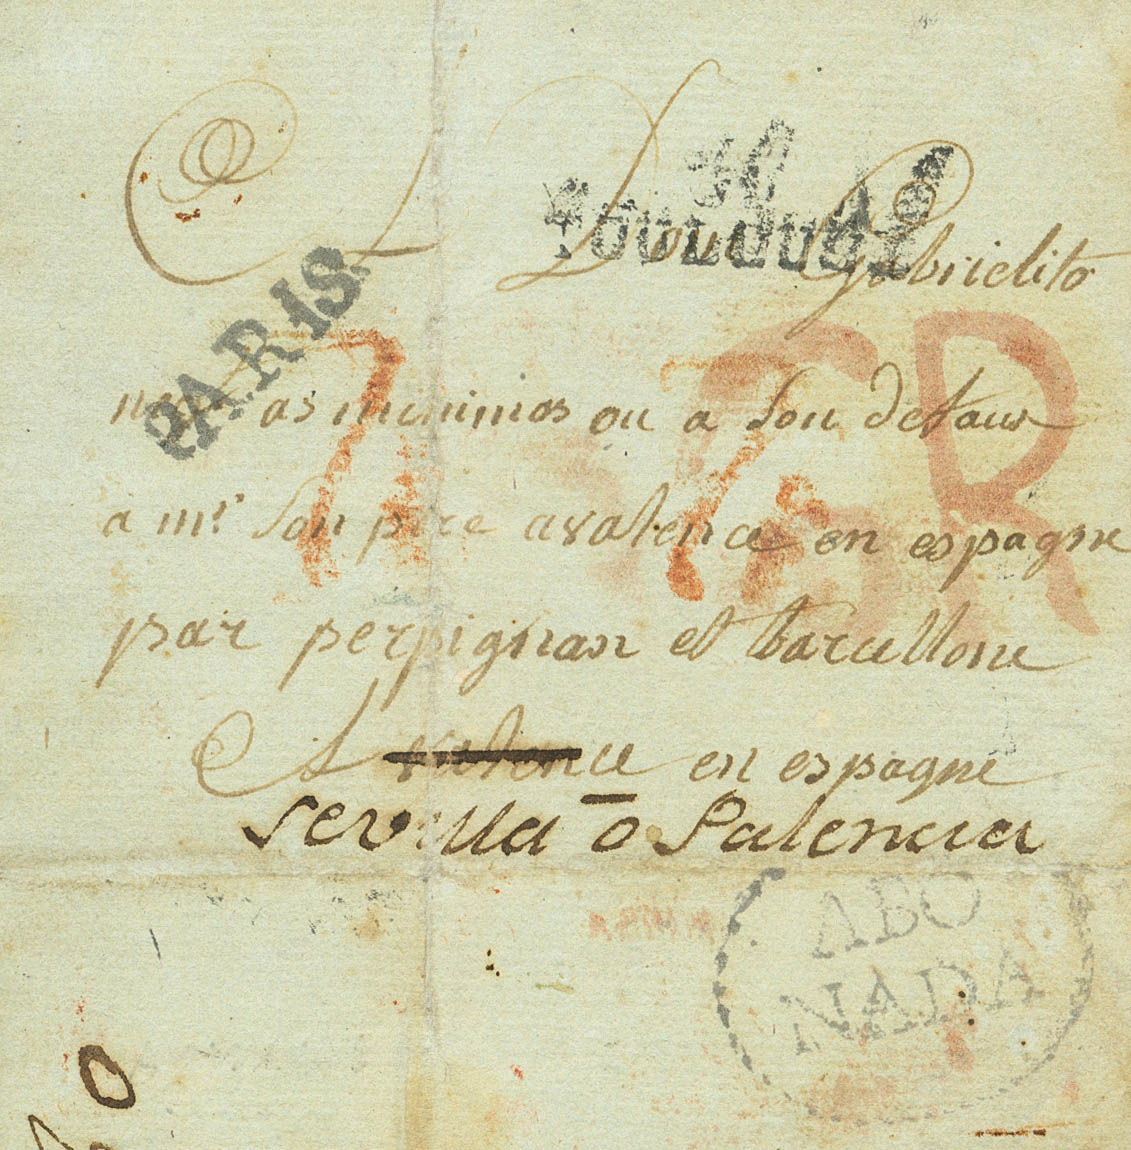 A Don Gabrielito
TOULOUSE
PARIS
7 7 GR
as minimos ou a son defaus
a mr. son pere a valence en espagne
par perpignan et barcellone
A valence en espagne
sevilla o Palencia
ABO
NADA